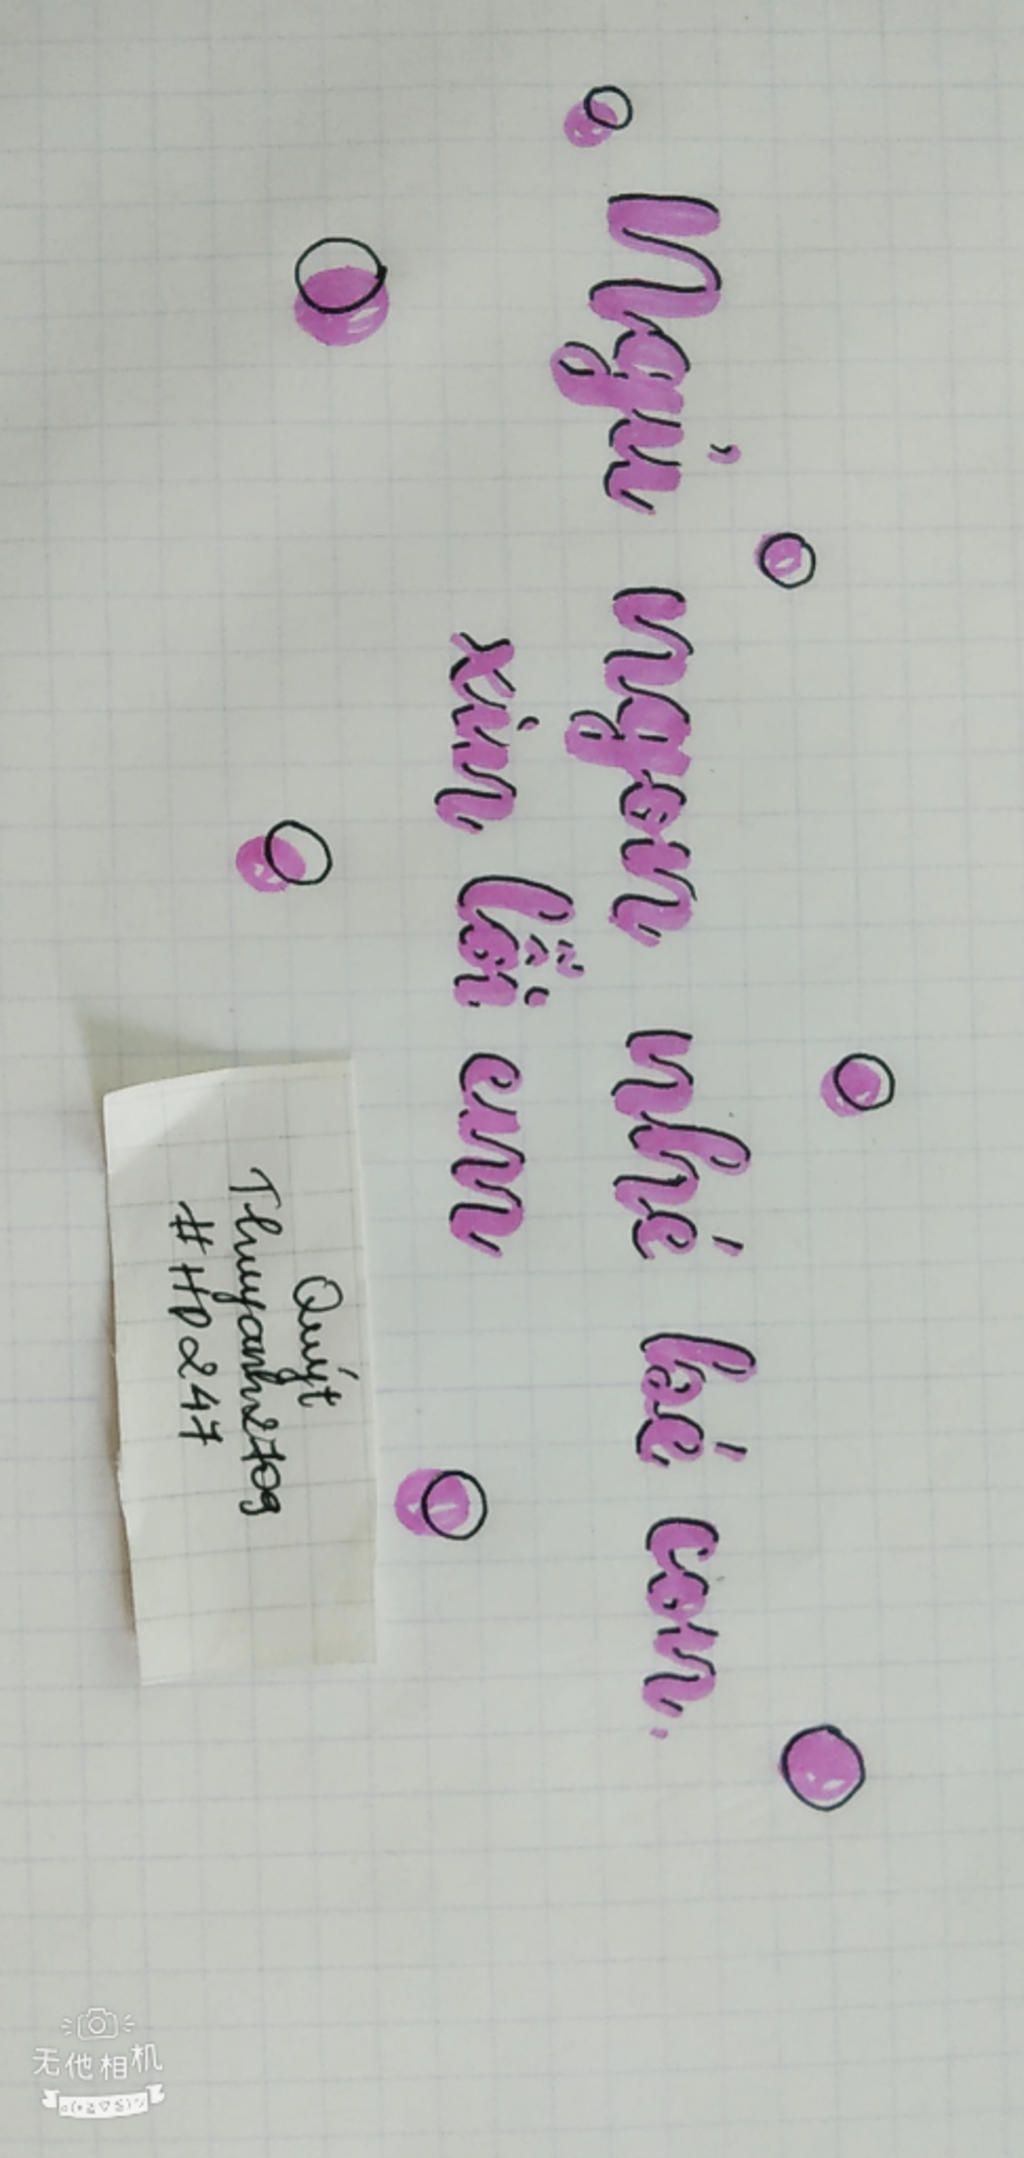 Ngủ ngon nhé bé con.
xin lỗi em
Quýt
Thuyanh2709
#HD247
无他相机